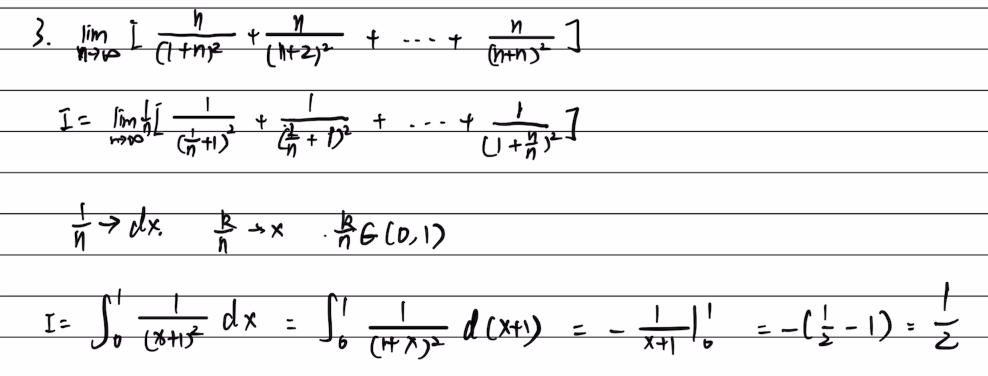 3. lim n→∞ [ n/(1+n)² + n/(n+2)² + ... + n/(n+n)² ]
I = lim n→∞ 1/n [ 1/(1/n+1)² + 1/(2/n+1)² + ... + 1/(1+n/n)² ]
1/n → dx. k/n → x . k/n ∈ (0,1)
I = ∫₀¹ 1/(x+1)² dx = ∫₀¹ 1/(1+x)² d(x+1) = - 1/(x+1) |₀¹ = -(1/2 - 1) = 1/2